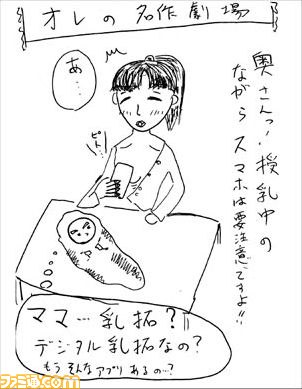 オレの名作劇場
奥さんっ!授乳中の
ながらスマホは要注意ですよ!!
あ…
ピト…
ママ…乳拓?
デジタル乳拓なの?
もうそんなアプリあるの…?
ファミ通.com